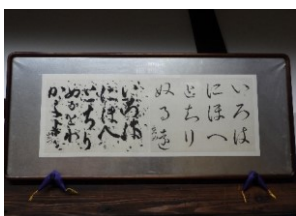 いろは
にほへ
とちり
ぬる遠
いろは
にほへ
とちり
ぬるをわ